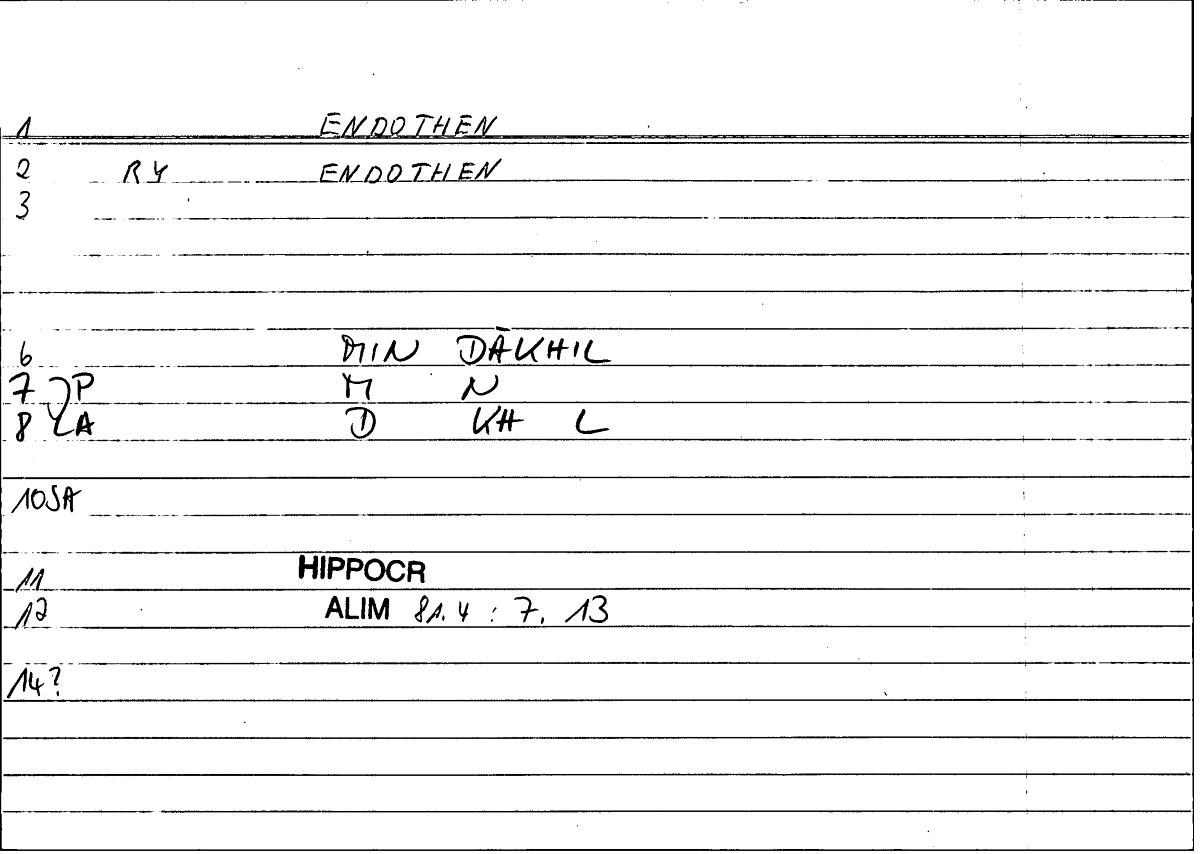 1 ENDOTHEN
2 RY ENDOTHEN
3
6 MIN DĀKHIL
7 P M N
8 LA D KH L
10 SA
11 HIPPOCR
12 ALIM 81.4 : 7. 13
14?